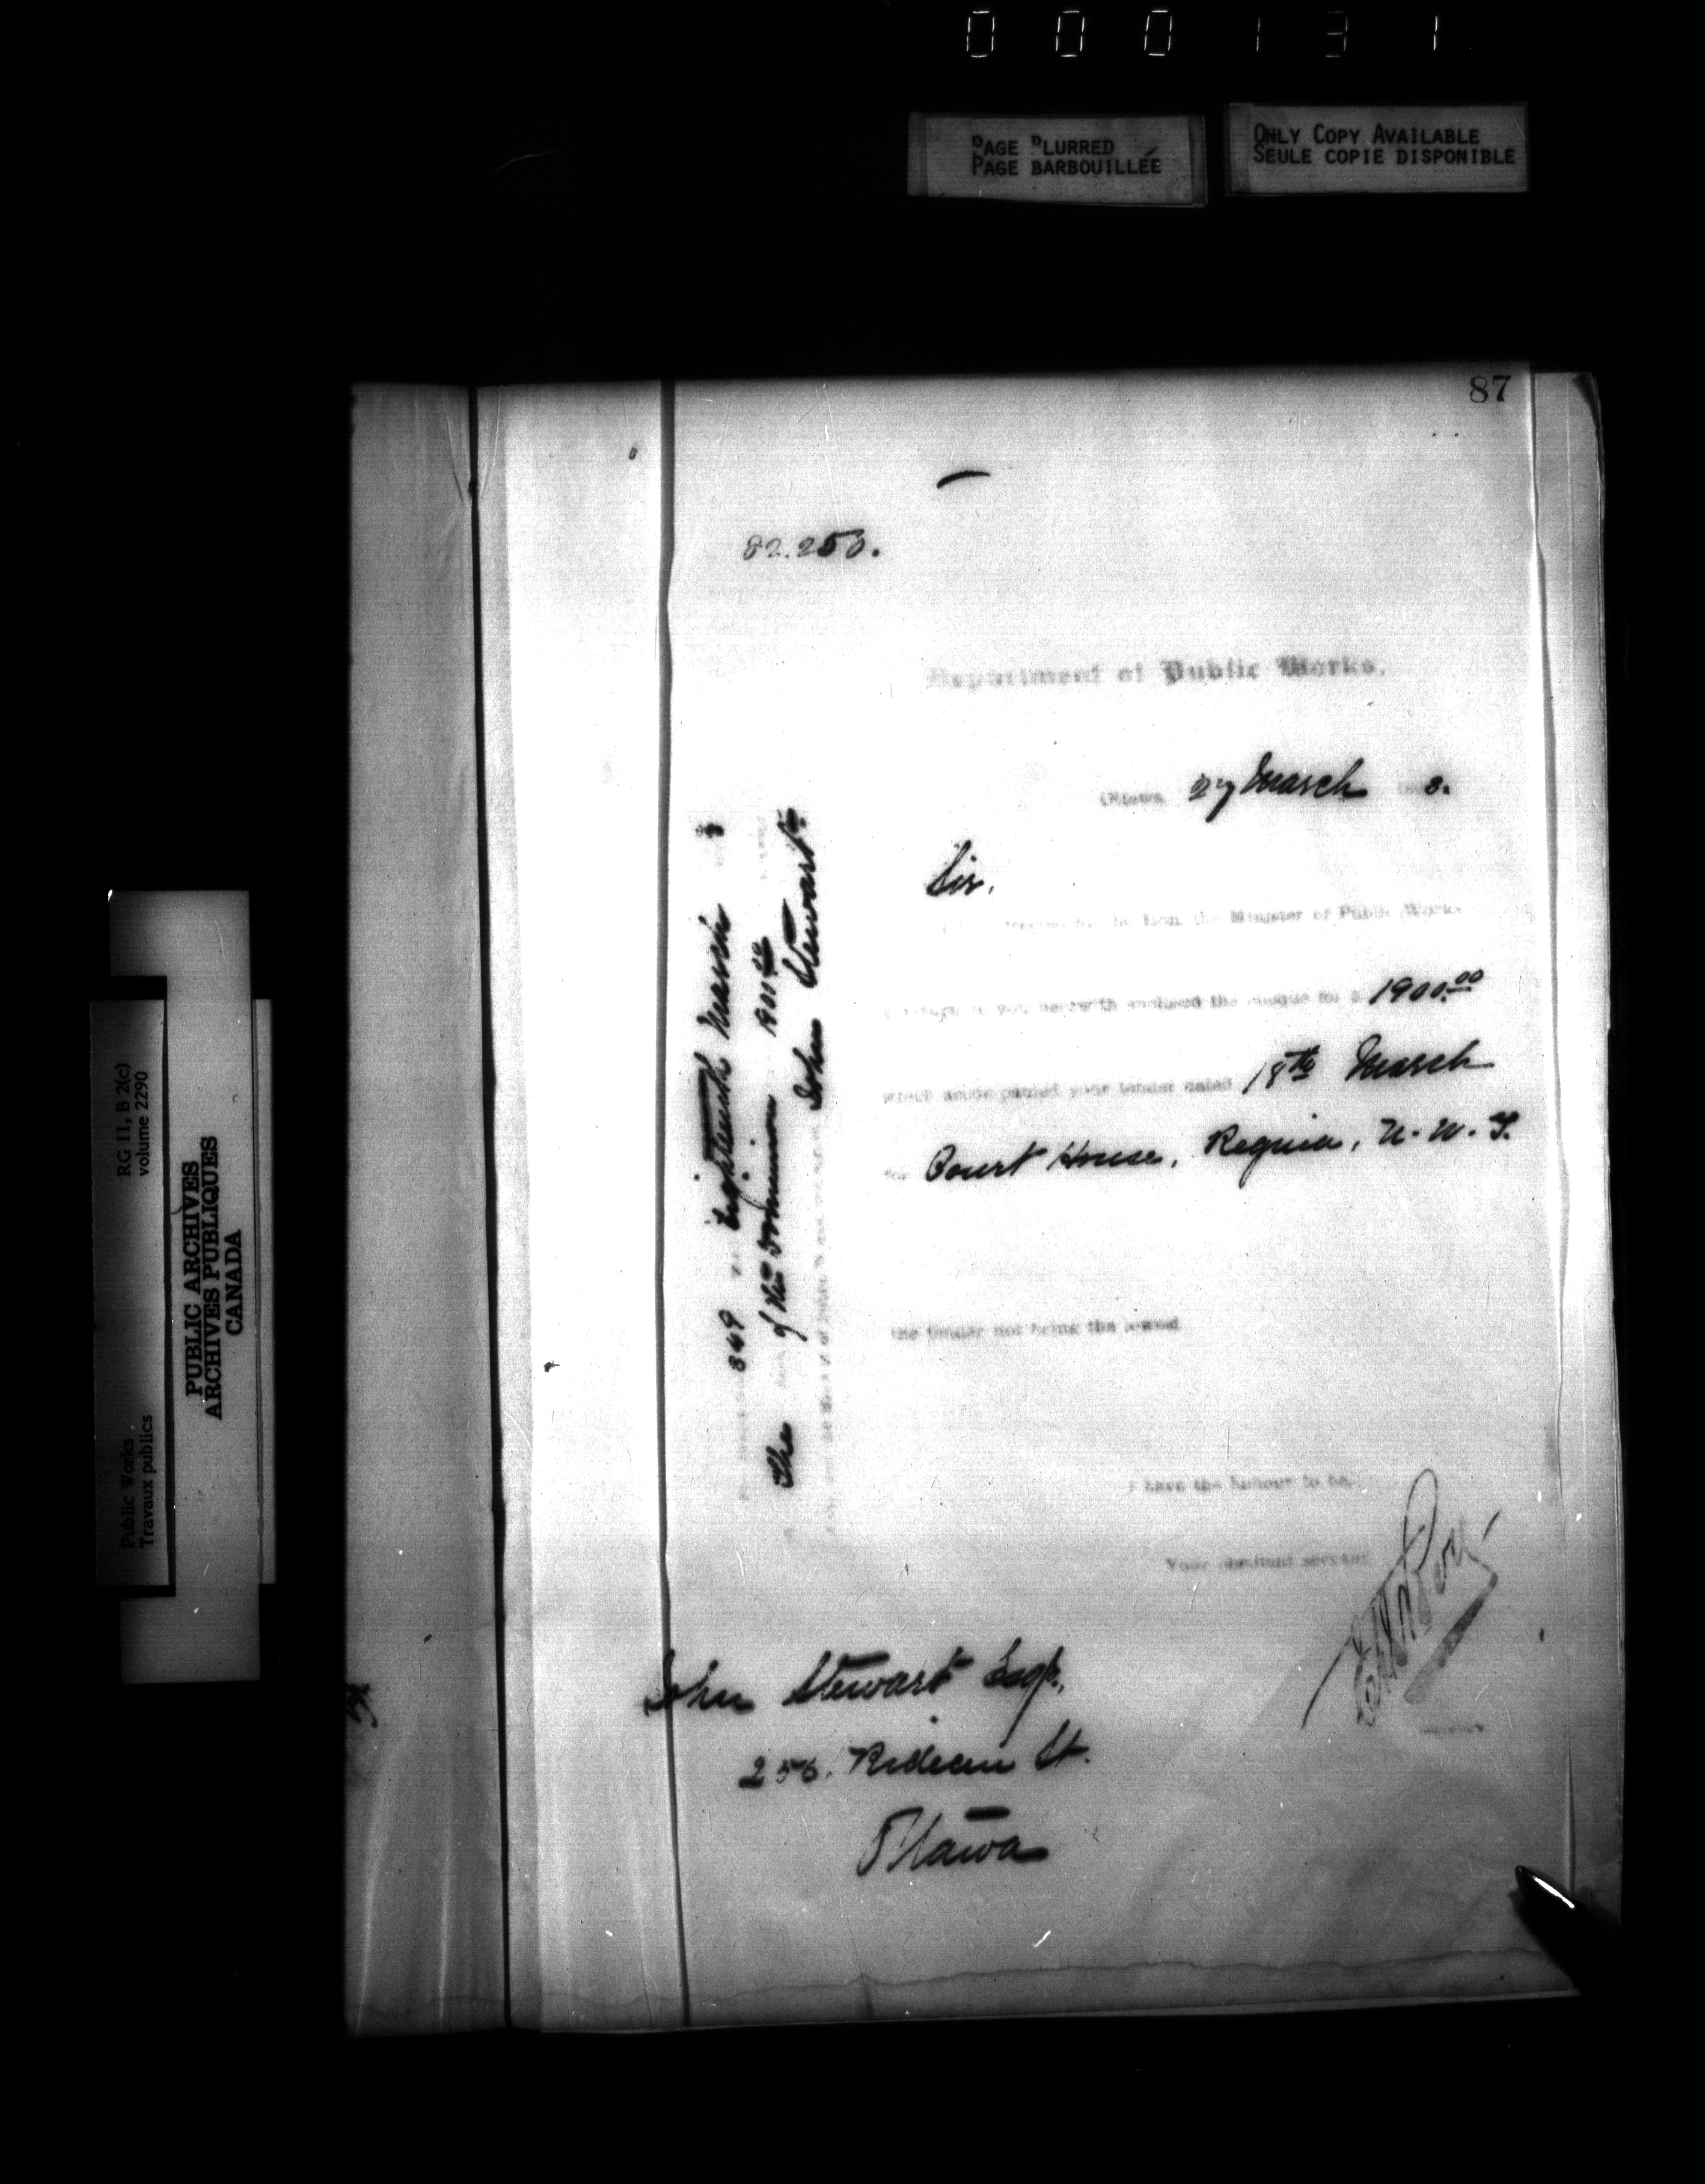 000131
PAGE BLURRED
PAGE BARBOUILLÉE
ONLY COPY AVAILABLE
SEULE COPIE DISPONIBLE
87
82.250.
Department of Public Works.
Ottawa 27 March 8.
Sir,
by the Hon. the Minister of Public Works
to return to you herewith enclosed the cheque for $ 1900.00
which accompanied your tender dated 18th March
for Court House, Regina, N. W. T.
the tender not being the lowest
I have the honour to be,
Your obedient servant
Secretary
John Stewart Esqr.
256. Rideau St.
Ottawa
849 Eighteenth March 8
The of the Dominion 1901.00
John Stewart
RG 11, B 2(c)
volume 2290
Public Works
Travaux publics
PUBLIC ARCHIVES
ARCHIVES PUBLIQUES
CANADA